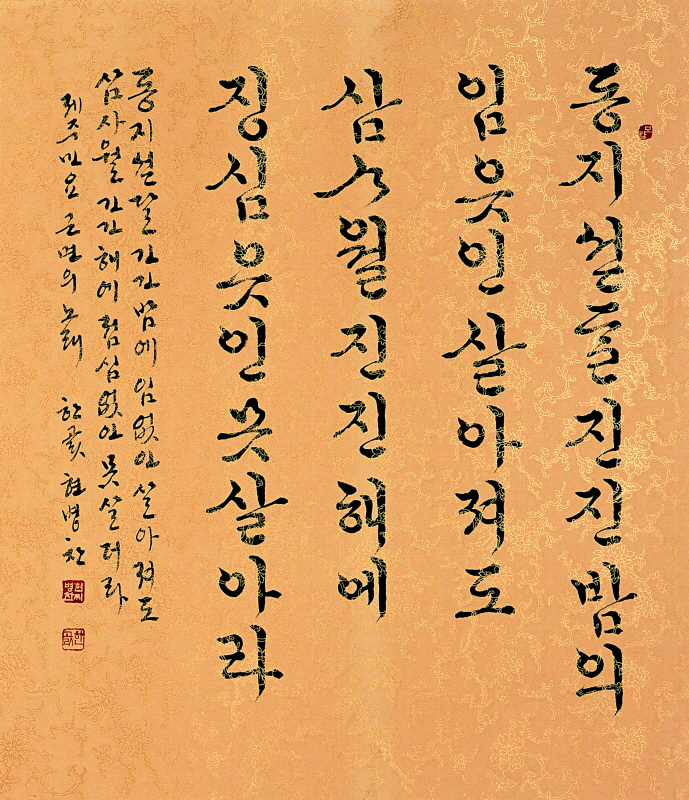 동지섣ᄃᆞᆯ진진밤의
임읏인살아져도
삼ᄉᆞ월진진해에
징심읏인못살아라
동지섣달긴긴밤에임없인살아져도
삼사월긴긴해에점심없인못살더라
제주민요 근면의 노래 한곬 현병찬